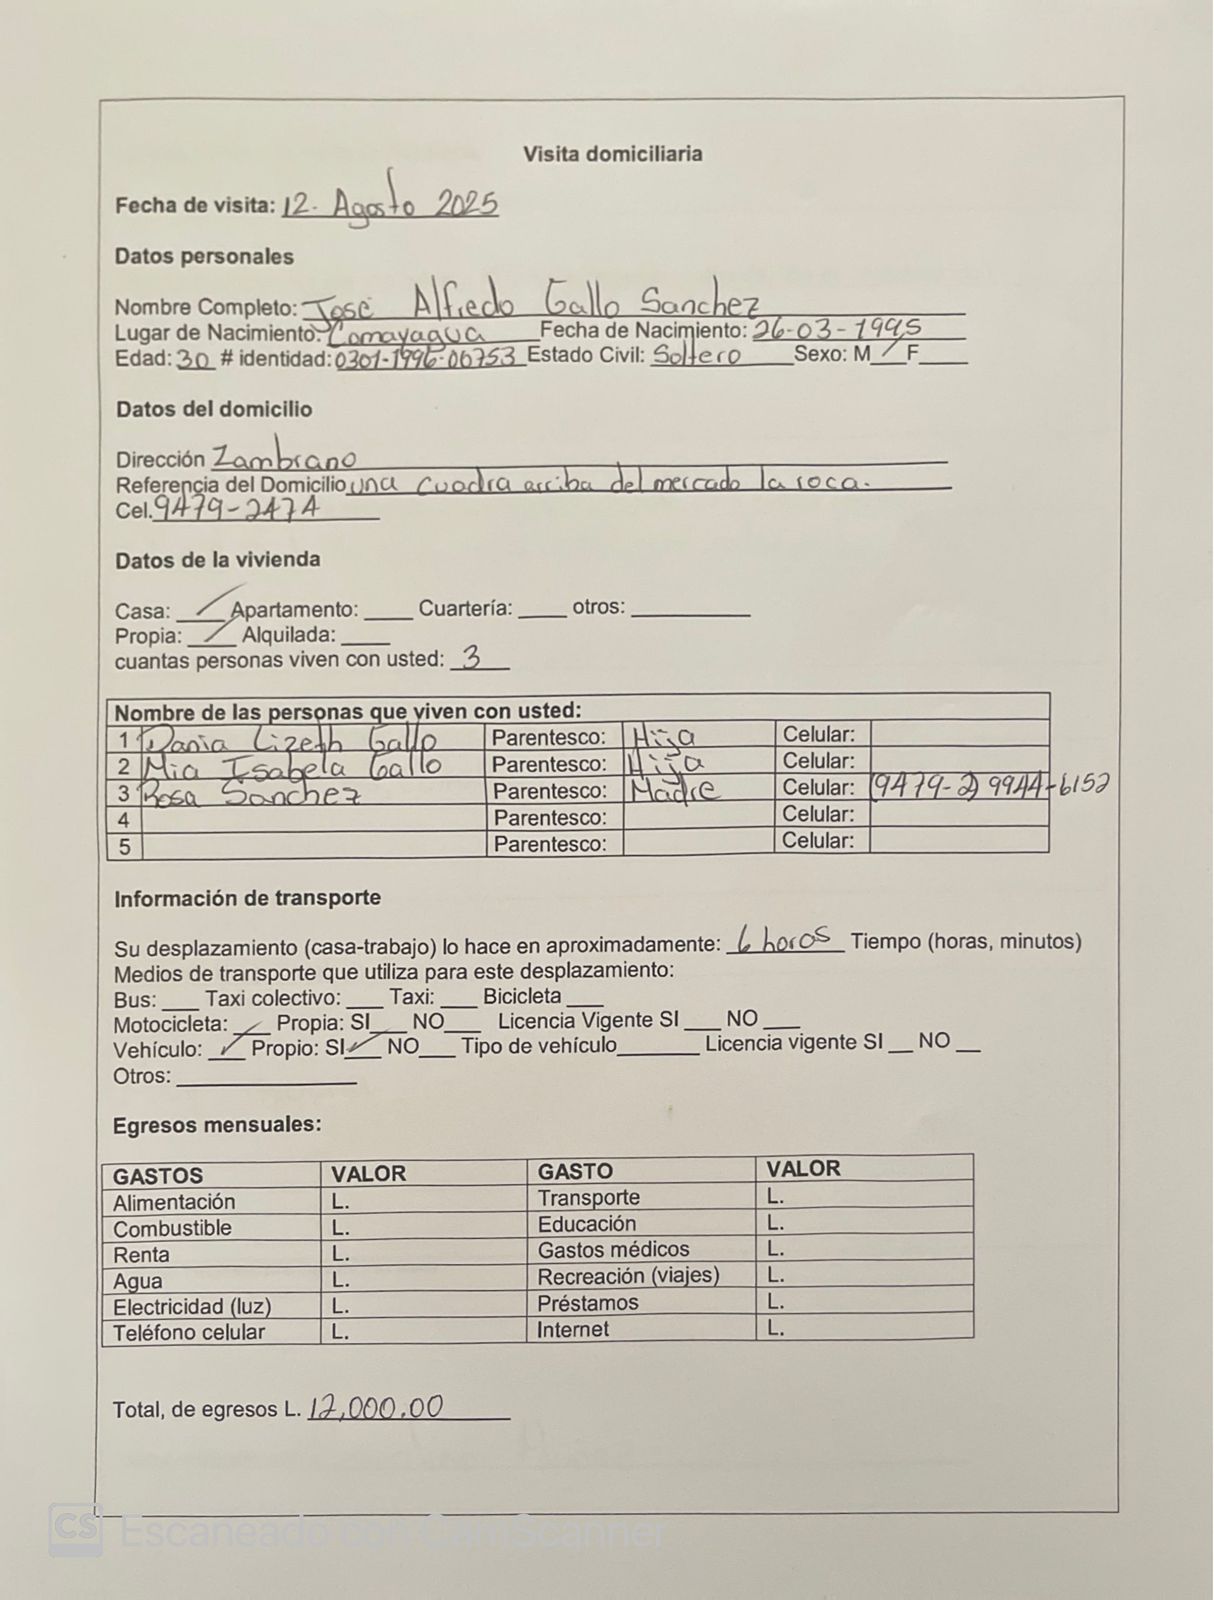 Visita domiciliaria
Fecha de visita: 12. Agosto 2025
Datos personales
Nombre Completo: José Alfredo Gallo Sanchez
Lugar de Nacimiento: Comayagua Fecha de Nacimiento: 26-03-1995
Edad: 30 # identidad: 0301-1996-00753 Estado Civil: Soltero Sexo: M ✓ F
Datos del domicilio
Dirección Zambrano
Referencia del Domicilio una cuadra arriba del mercado la roca.
Cel. 9479-2474
Datos de la vivienda
Casa: ✓ Apartamento: ____ Cuartería: ____ otros: ____
Propia: ✓ Alquilada: ____
cuantas personas viven con usted: 3
Nombre de las personas que viven con usted:
1 Dania Lizeth Gallo Parentesco: Hija Celular:
2 Mia Isabela Gallo Parentesco: Hija Celular:
3 Rosa Sanchez Parentesco: Madre Celular: (9479-2) 9944-6152
4 Parentesco: Celular:
5 Parentesco: Celular:
Información de transporte
Su desplazamiento (casa-trabajo) lo hace en aproximadamente: 6 horas Tiempo (horas, minutos)
Medios de transporte que utiliza para este desplazamiento:
Bus: ___ Taxi colectivo: ___ Taxi: ___ Bicicleta ___
Motocicleta: ✓ Propia: SI___ NO___ Licencia Vigente SI ___ NO ___
Vehículo: ✓ Propio: SI ✓ NO___ Tipo de vehículo_______ Licencia vigente SI __ NO __
Otros: ____
Egresos mensuales:
GASTOS VALOR GASTO VALOR
Alimentación L. Transporte L.
Combustible L. Educación L.
Renta L. Gastos médicos L.
Agua L. Recreación (viajes) L.
Electricidad (luz) L. Préstamos L.
Teléfono celular L. Internet L.
Total, de egresos L. 12,000.00
CS Escaneado con CamScanner